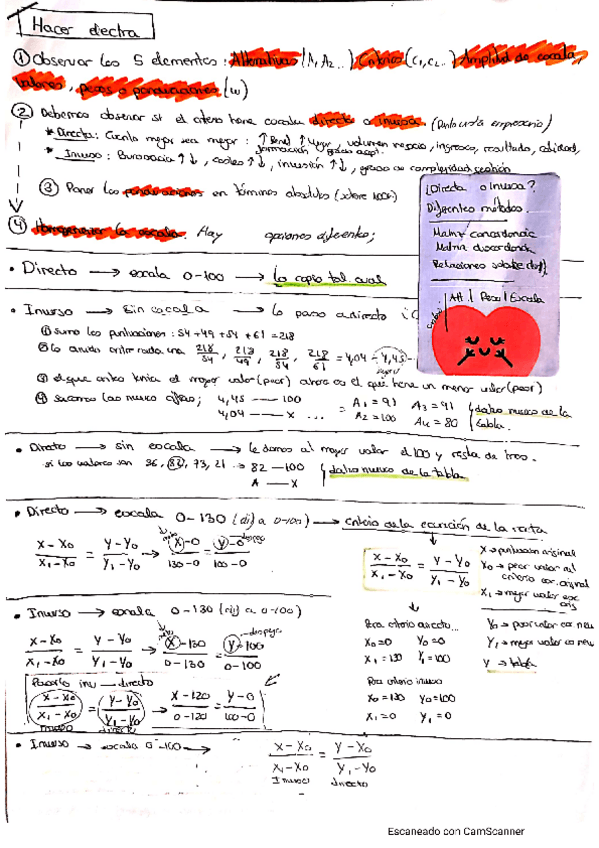 Hacer electra
① Observar los 5 elementos: Alternativas (A₁, A₂...) Criterios (C₁, C₂...) Amplitud de escala,
valores, pesos o ponderaciones (w)
② Debemos observar si el criterio tiene escala directa o inversa (punto vista empresario)
* Directa: Cuanto mayor sea mejor: ↑ volumen negocio, ingresos, resultado, calidad,
* Inverso: Burocracia ↑↓, costes ↑↓, inversión ↑↓, grado de complejidad gestión
③ Poner las ponderaciones en términos absolutos (sobre 100)
④ Homogeneizar la escala. Hay opciones diferentes;
¿Directa o inversa?
Diferentes métodos.
Matriz concordancia
Matriz discordancia
Relaciones sobreclasif.
Alt | Peso | Escala
• Directo → escala 0-100 → Lo copio tal cual
• Inverso → Sin escala → lo paso a directo
① Sumo las puntuaciones: 54+49+54+61=218
218/54, 218/49, 218/54, 218/61 = 4,04 - 4,45
③ el que antes tenía el mayor valor (peor) ahora es el que tiene un menor valor (peor)
④ Sacamos las nuevas cifras; 4,45 —— 100
4,04 —— X ... = A₁ = 91 A₃ = 91
A₂ = 100 A₄ = 80
datos nuevos de la tabla.
• Directo → sin escala → le damos al mayor valor el 100 y regla de tres.
si los valores son 36, 82, 73, 21 → 82 — 100
A — X
datos nuevos de la tabla
• Directo → escala 0-130 (dif a 0-100) → criterio de la ecuación de la recta
X-X₀/X₁-X₀ = Y-Y₀/Y₁-Y₀ → X-0/130-0 = Y-0/100-0
X-X₀/X₁-X₀ = Y-Y₀/Y₁-Y₀
X → puntuación original
X₀ → peor valor del criterio esc. original
X₁ → mejor valor esc orig
Y₀ → peor valor esc nueva
Y₁ → mejor valor esc nueva
Y → tabla
Para criterio directo...
X₀=0 Y₀=0
X₁=130 Y₁=100
Para criterio inverso
X₀=130 Y₀=100
X₁=0 Y₁=0
• Inverso → escala 0-130 (dif a 0-100)
despeja
X-X₀/X₁-X₀ = Y-Y₀/Y₁-Y₀ → X-130/0-130 = Y-100/0-100
Pasarlo inv → directo
X-X₀/X₁-X₀ = Y-Y₀/Y₁-Y₀ → X-120/0-120 = Y-0/100-0
Inverso directo
• Inverso → escala 0-100 → X-X₀/X₁-X₀ = Y-Y₀/Y₁-Y₀
Inverso directo
Escaneado con CamScanner